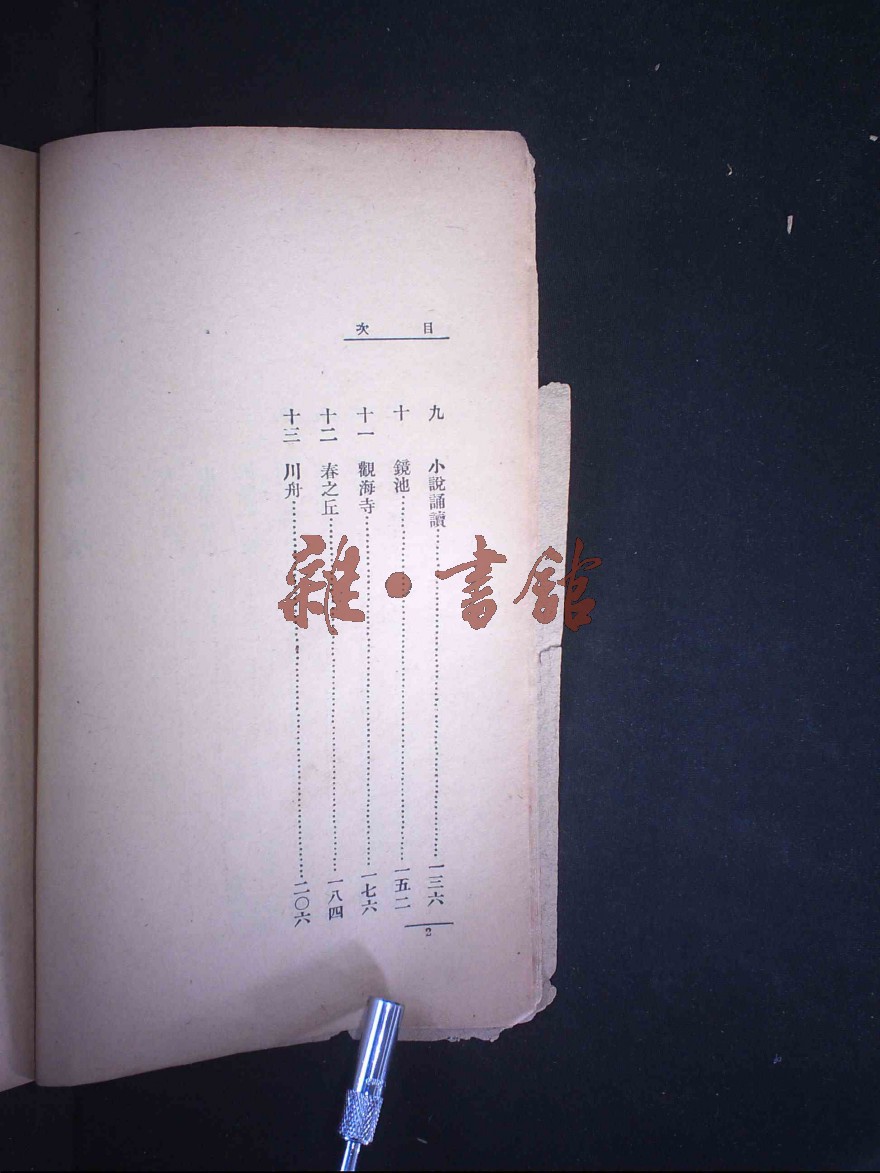 目次
九 小說誦讀……一三六
十 鏡池……一五二
十一 觀海寺……一七六
十二 春之丘……一八四
十三 川舟……二〇六
2
雜·書館